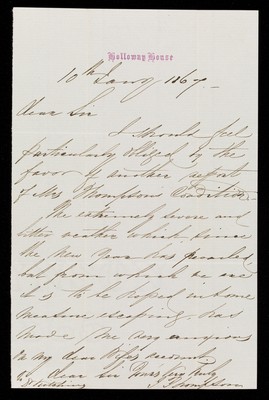 Holloway House
10th Jany 1867.
Dear Sir
I should feel
particularly obliged by the
favor of another report
of Mrs Thompson's Condition.
The extremely severe and
bitter weather which since
the New Year has prevailed
but from which we are
it is to be hoped in some
measure escaping, has
made me very anxious
on my dear Wife's account.
dear Sir Yours very truly
J Thompson